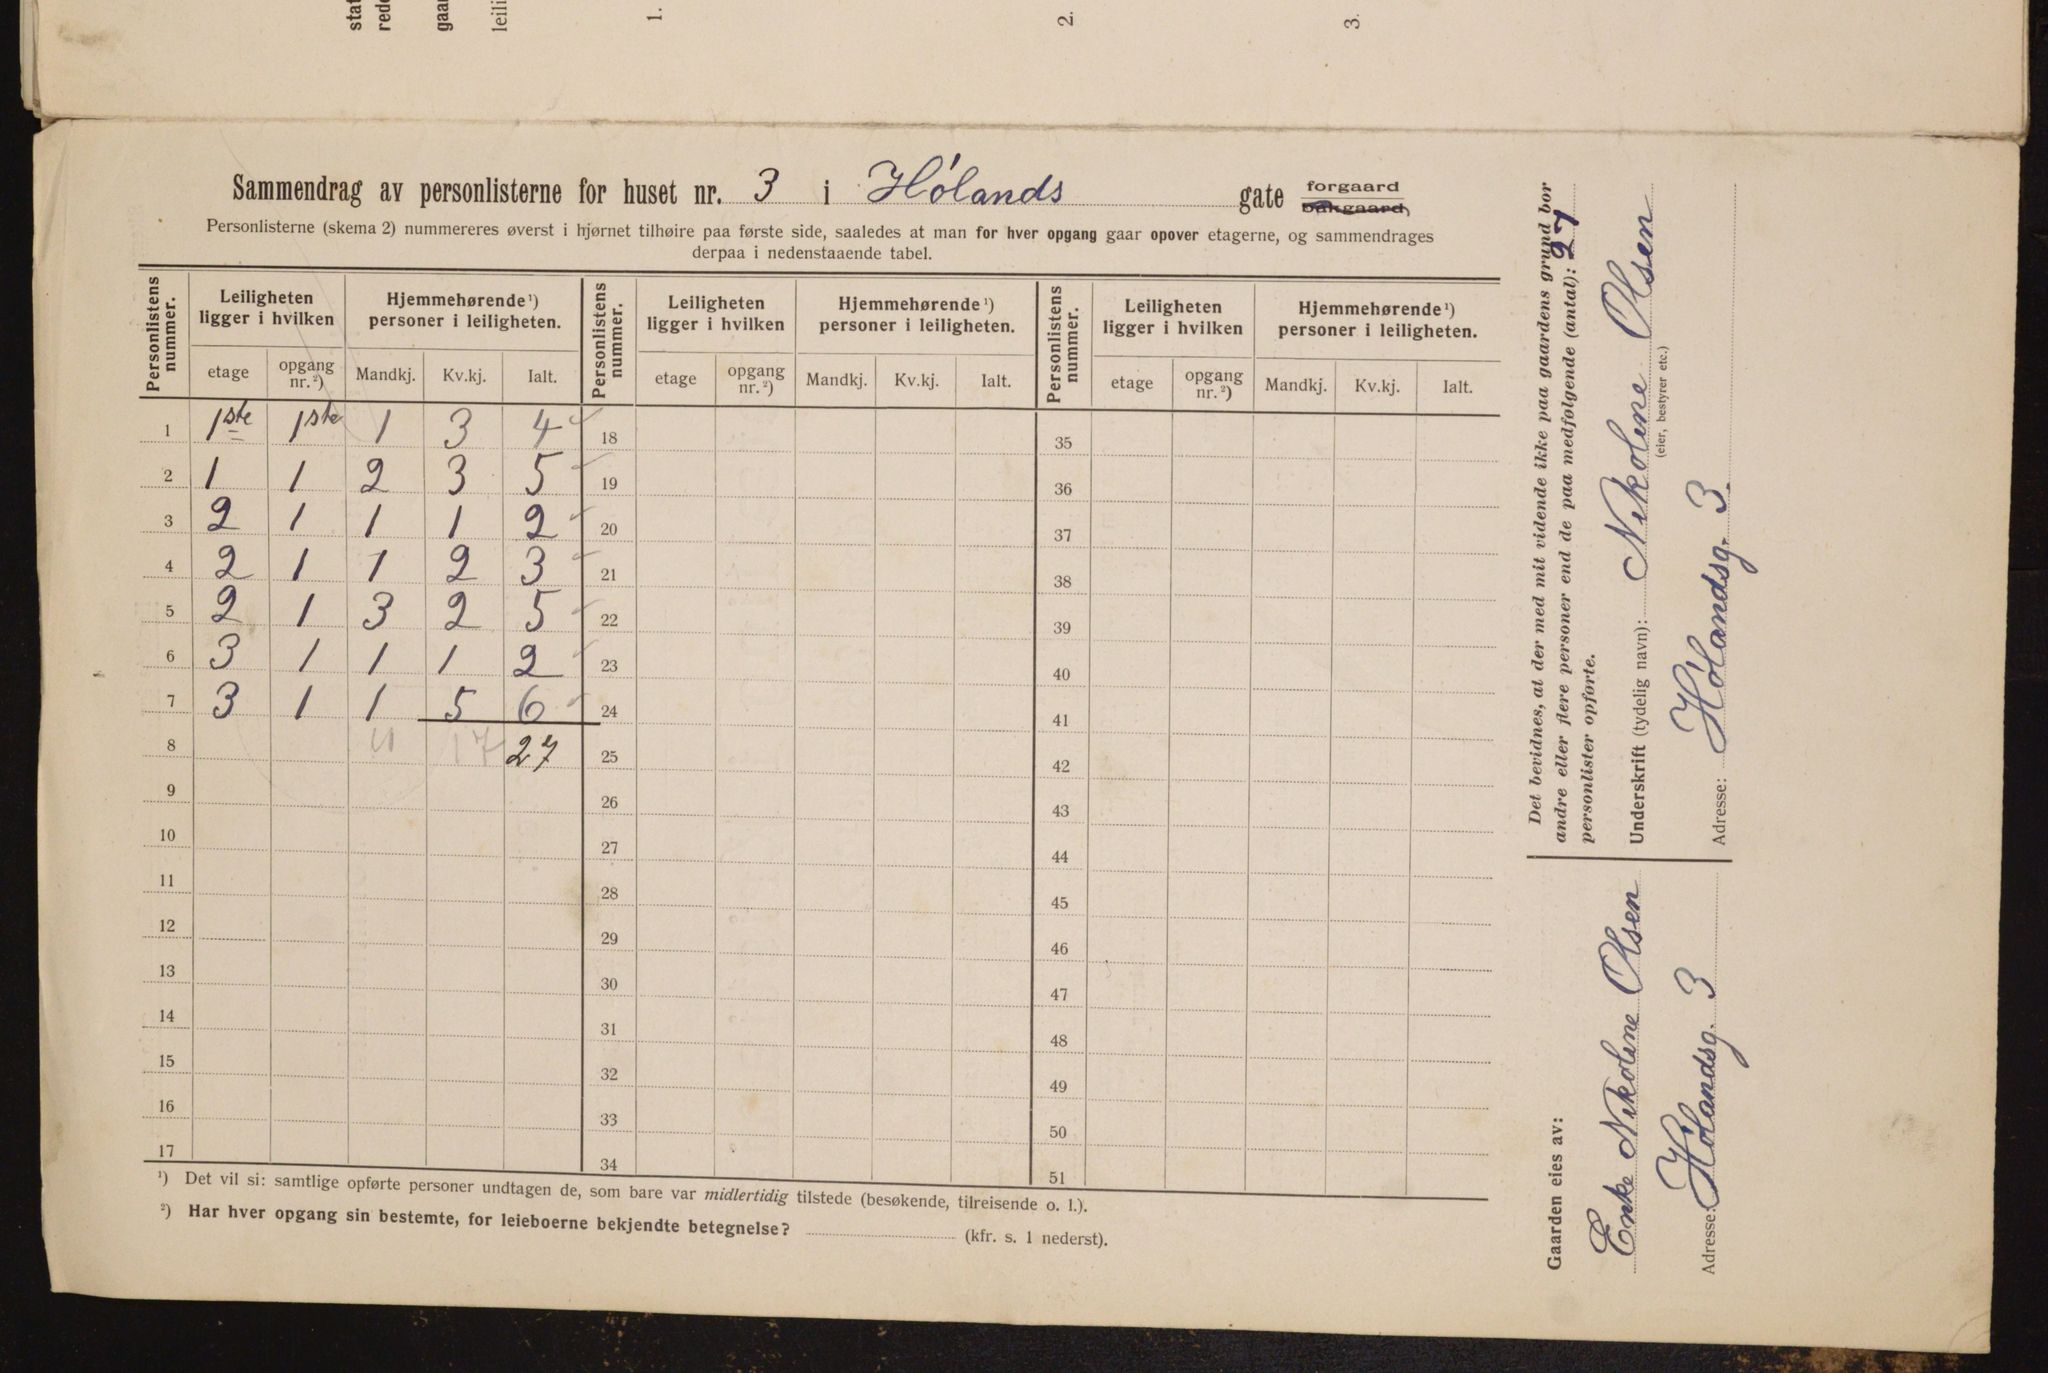 stat
rede
gaar
leili
1.
2.
3.
Sammendrag av personlisterne for huset nr. 3 i Hólands gate forgaard
bakgaard)
Personlisterne (skema 2) nummereres øverst i hjørnet tilhøire paa første side, saaledes at man for hver opgang gaar opover etagerne, og sammendrages
derpaa i nedenstaaende tabel.
Personlistens nummer. Leiligheten ligger i hvilken Hjemmehørende ¹) personer i leiligheten. Personlistens nummer. Leiligheten ligger i hvilken Hjemmehørende ¹) personer i leiligheten. Personlistens nummer. Leiligheten ligger i hvilken Hjemmehørende ¹) personer i leiligheten.
etage opgang nr.²) Mandkj. Kv.kj. Ialt. etage opgang nr.²) Mandkj. Kv.kj. Ialt. etage opgang nr.²) Mandkj. Kv.kj. Ialt.
1 1ste 1ste 1 3 4 18 35
2 1 1 2 3 5 19 36
3 2 1 1 1 2 20 37
4 2 1 1 2 3 21 38
5 2 1 3 2 5 22 39
6 3 1 1 1 2 23 40
7 3 1 1 5 6 24 41
8 17 27 25 42
9 26 43
10 27 44
11 28 45
12 29 46
13 30 47
14 31 48
15 32 49
16 33 50
17 34 51
¹) Det vil si: samtlige opførte personer undtagen de, som bare var midlertidig tilstede (besøkende, tilreisende o. l.).
²) Har hver opgang sin bestemte, for leieboerne bekjendte betegnelse? (kfr. s. 1 nederst).
Det bevidnes, at der med mit vidende ikke paa gaardens grund bor
andre eller flere personer end de paa medfølgende (antal): 27
personlister opførte.
Underskrift (tydelig navn): Nikoline Olsen
(eier, bestyrer etc.)
Adresse: Hólandsg. 3.
Gaarden eies av:
Enke Nikoline Olsen
Adresse: Hólandsg. 3